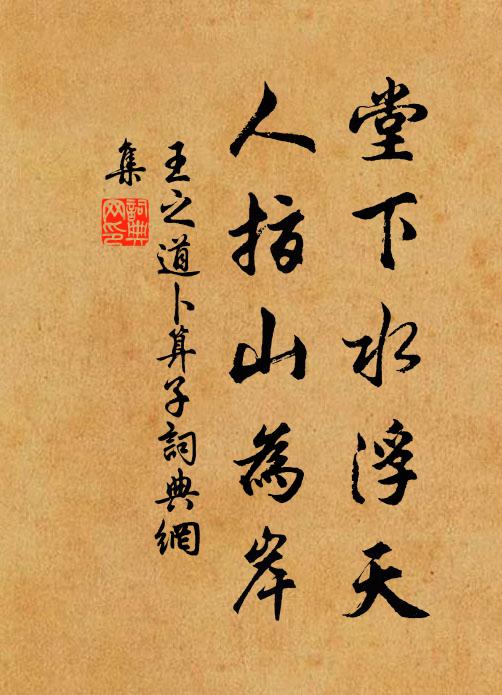 堂下水浮天
人指山為岸
王之道卜算子詞典網
集
詞典
网印